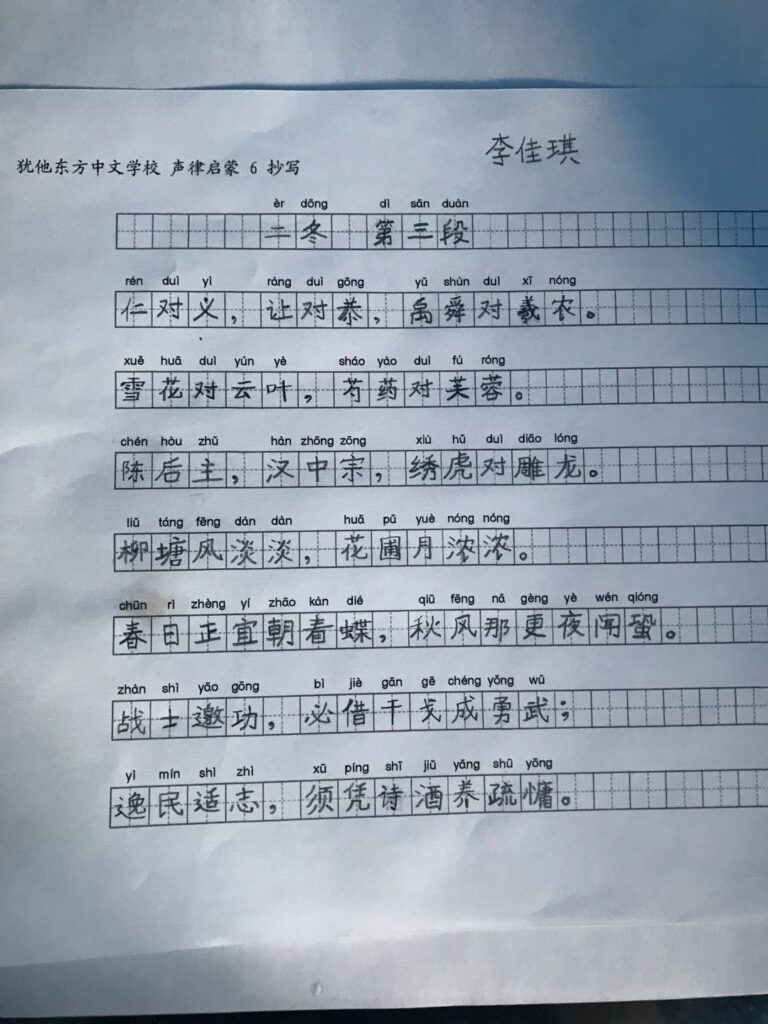 李佳琪
犹他东方中文学校 声律启蒙 6 抄写
èr dōng dì sān duàn
二冬 第三段
rén duì yì ràng duì gōng yǔ shùn duì xī nóng
仁对义，让对恭，禹舜对羲农。
xuě huā duì yún yè sháo yào duì fú róng
雪花对云叶，芍药对芙蓉。
chén hòu zhǔ hàn zhōng zōng xiù hǔ duì diāo lóng
陈后主，汉中宗，绣虎对雕龙。
liǔ táng fēng dàn dàn huā pǔ yuè nóng nóng
柳塘风淡淡，花圃月浓浓。
chūn rì zhèng yí zhāo kàn dié qiū fēng nǎ gèng yè wén qióng
春日正宜朝看蝶，秋风那更夜闻蛩。
zhàn shì yāo gōng bì jiè gān gē chéng yǒng wǔ
战士邀功，必借干戈成勇武；
yì mín shì zhì xū píng shī jiǔ yǎng shū yōng
逸民适志，须凭诗酒养疏慵。